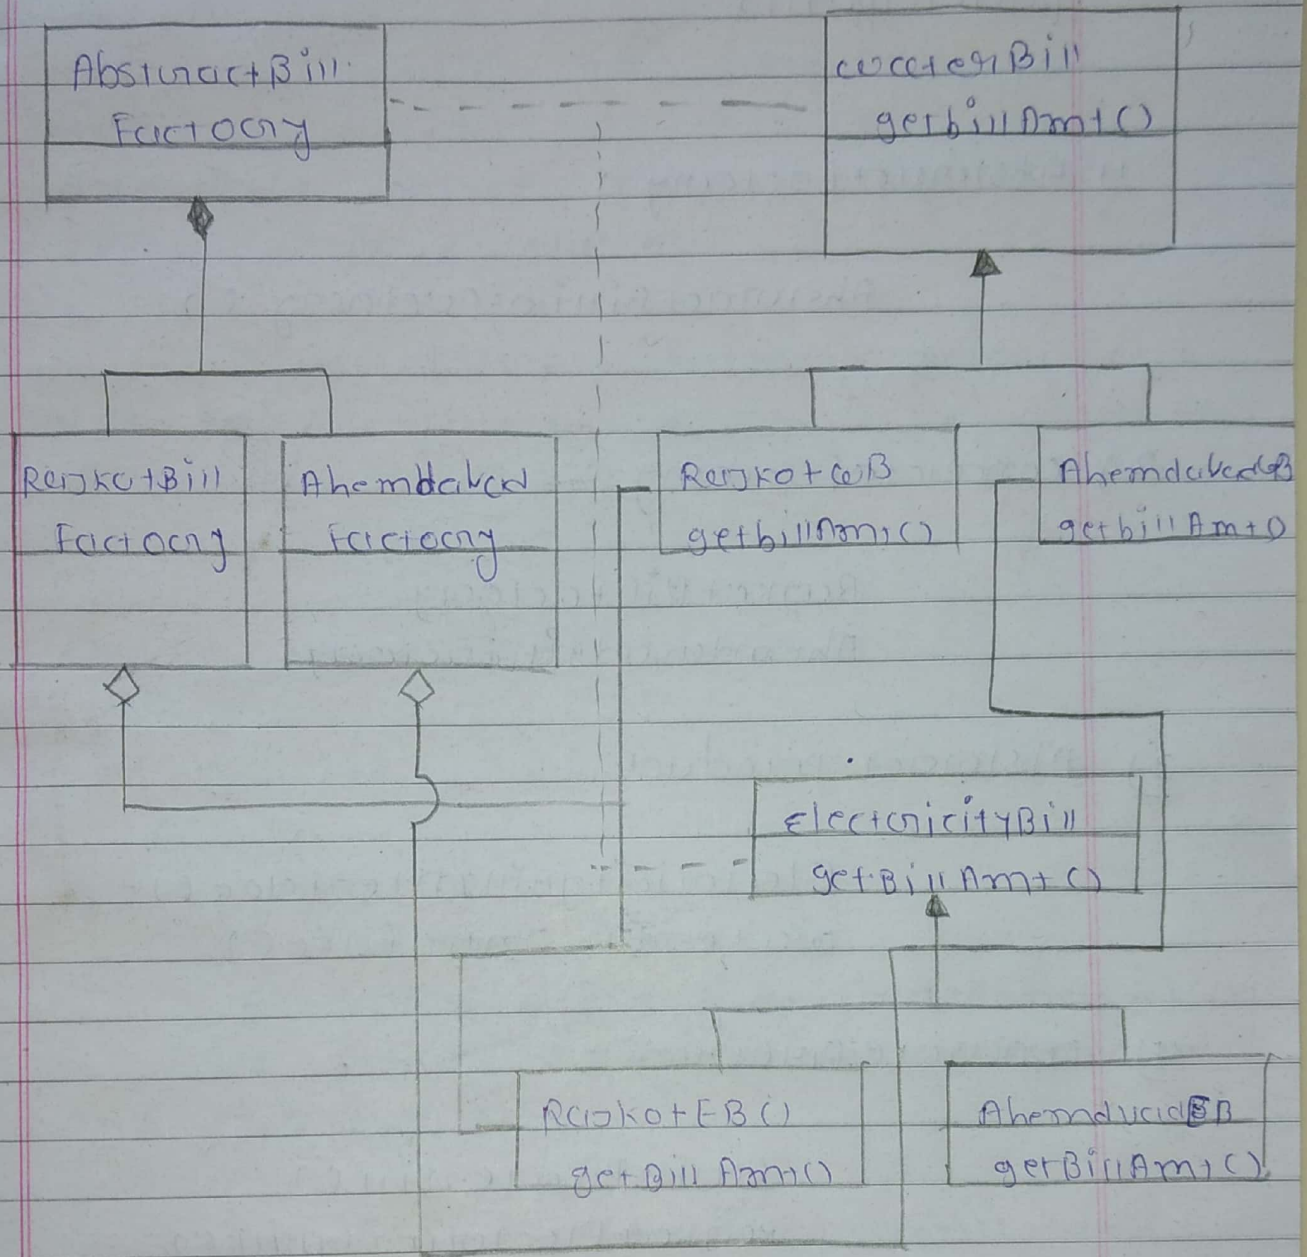 Abstract Bill
Factory
waterBill
getbillAmt()
RajkotBill
Factory
Ahemdabad
Factory
RajkotWB
getbillAmt()
AhemdabadWB
getbillAmt()
ElectricityBill
getBillAmt()
RajkotEB()
getBillAmt()
AhemdabadEB
getBillAmt()